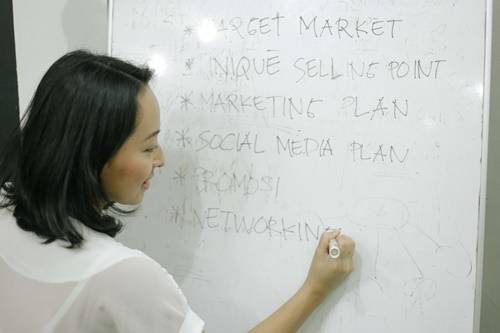 * TARGET MARKET
* UNIQUE SELLING POINT
* MARKETING PLAN
* SOCIAL MEDIA PLAN
* PROMOSI
* NETWORKIN